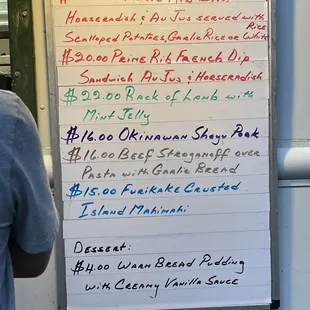 Horseradish & Au Jus served with
Rice
Scalloped Potatoes, Garlic Rice or White
$20.00 Prime Rib French Dip
Sandwich Au Jus & Horseradish
$22.00 Rack of Lamb with
Mint Jelly
$16.00 Okinawan Shoyu Pork
$16.00 Beef Stroganoff over
Pasta with Garlic Bread
$15.00 Furikake Crusted
Island Mahimahi
Dessert:
$4.00 Warm Bread Pudding
with Creamy Vanilla Sauce